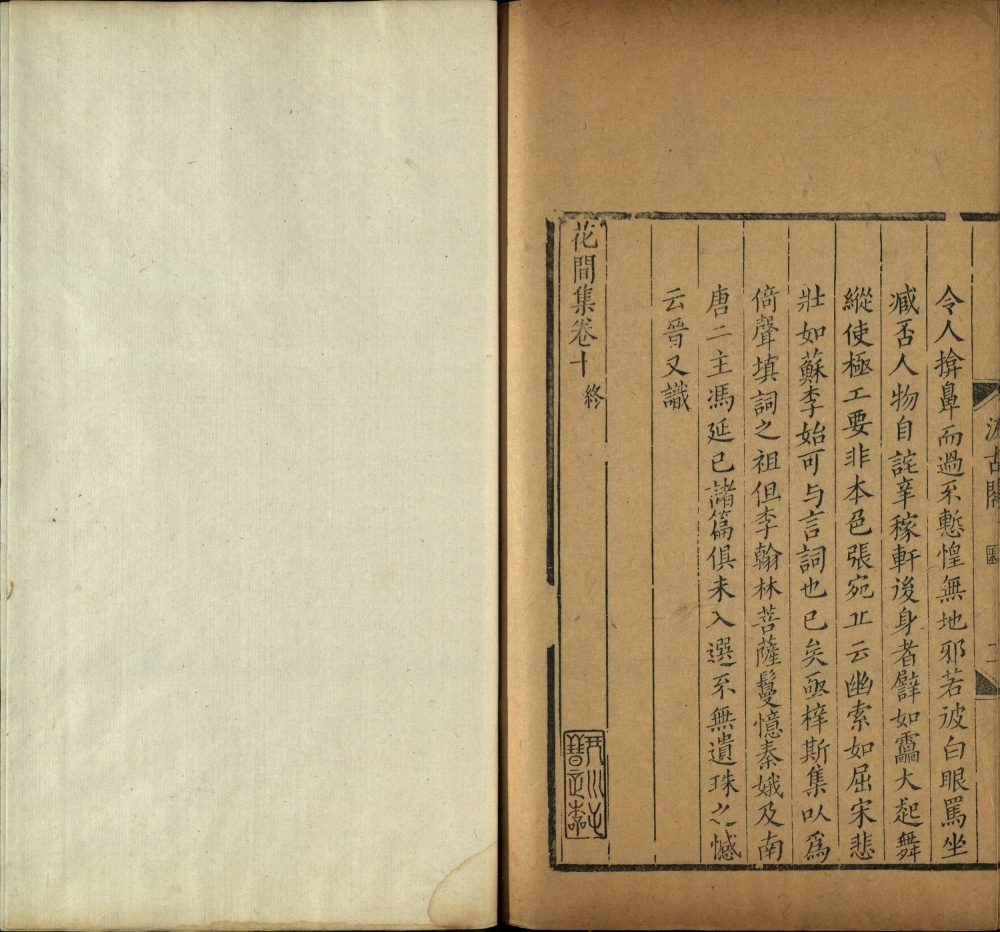 汲古閣
二
令人揜鼻而過不慙惶無地邪若彼白眼罵坐
臧否人物自詫辛稼軒後身者譬如靁大起舞
縱使極工要非本色張宛丘云幽索如屈宋悲
壯如蘇李始可与言詞也已矣亟梓斯集以爲
倚聲填詞之祖但李翰林菩薩鬘憶秦娥及南
唐二主馮延巳諸篇俱未入選不無遺珠之憾
云晉又識
花間集卷十 終